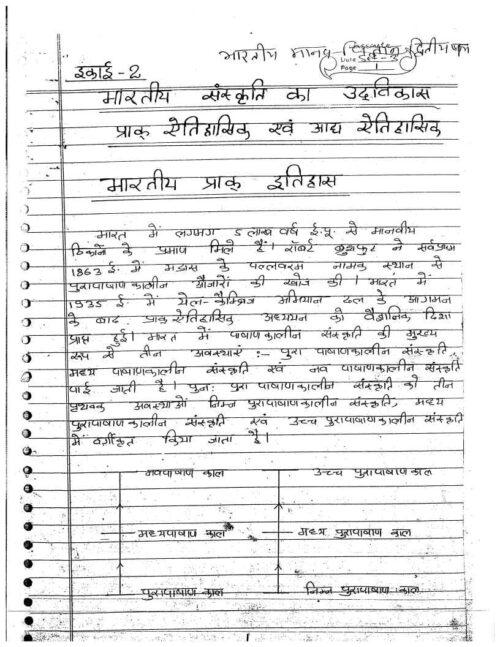 भारतीय मानव विज्ञान द्वितीय
Date Set-2
Page 1
इकाई-2
भारतीय संस्कृति का उद्विकास
प्राक् ऐतिहासिक एवं आद्य ऐतिहासिक
भारतीय प्राक् इतिहास
भारत में लगभग 5 लाख वर्ष ई.पू. से मानवीय
ठिकाने के प्रमाप मिले हैं। रॉबर्ट ब्रुशफुट ने सर्वप्रथम
1863 ई. में मद्रास के पल्लवरम नामक स्थान से
पुरापाषाणकालीन औजारों की खोज की। भारत में
1935 ई. में येल-कैम्ब्रिज अभियान दल के आगमन
के बाद प्राक् ऐतिहासिक अध्ययन को वैज्ञानिक दिशा
प्राप्त हुई। भारत में पाषाणकालीन संस्कृति की मुख्य
रूप से तीन अवस्थाएं :- पुरा पाषाणकालीन संस्कृति,
मध्य पाषाणकालीन संस्कृति एवं नव पाषाणकालीन संस्कृति
पाई जाती है। पुनः पुरा पाषाणकालीन संस्कृति को तीन
पृथक अवस्थाओं निम्न पुरापाषाणकालीन संस्कृति, मध्य
पुरापाषाणकालीन संस्कृति एवं उच्च पुरापाषाणकालीन संस्कृति
में वर्गीकृत किया जाता है।
नवपाषाण काल उच्च पुरापाषाण काल
मध्यपाषाण काल मध्य पुरापाषाण काल
पुरापाषाण काल निम्न पुरापाषाण काल